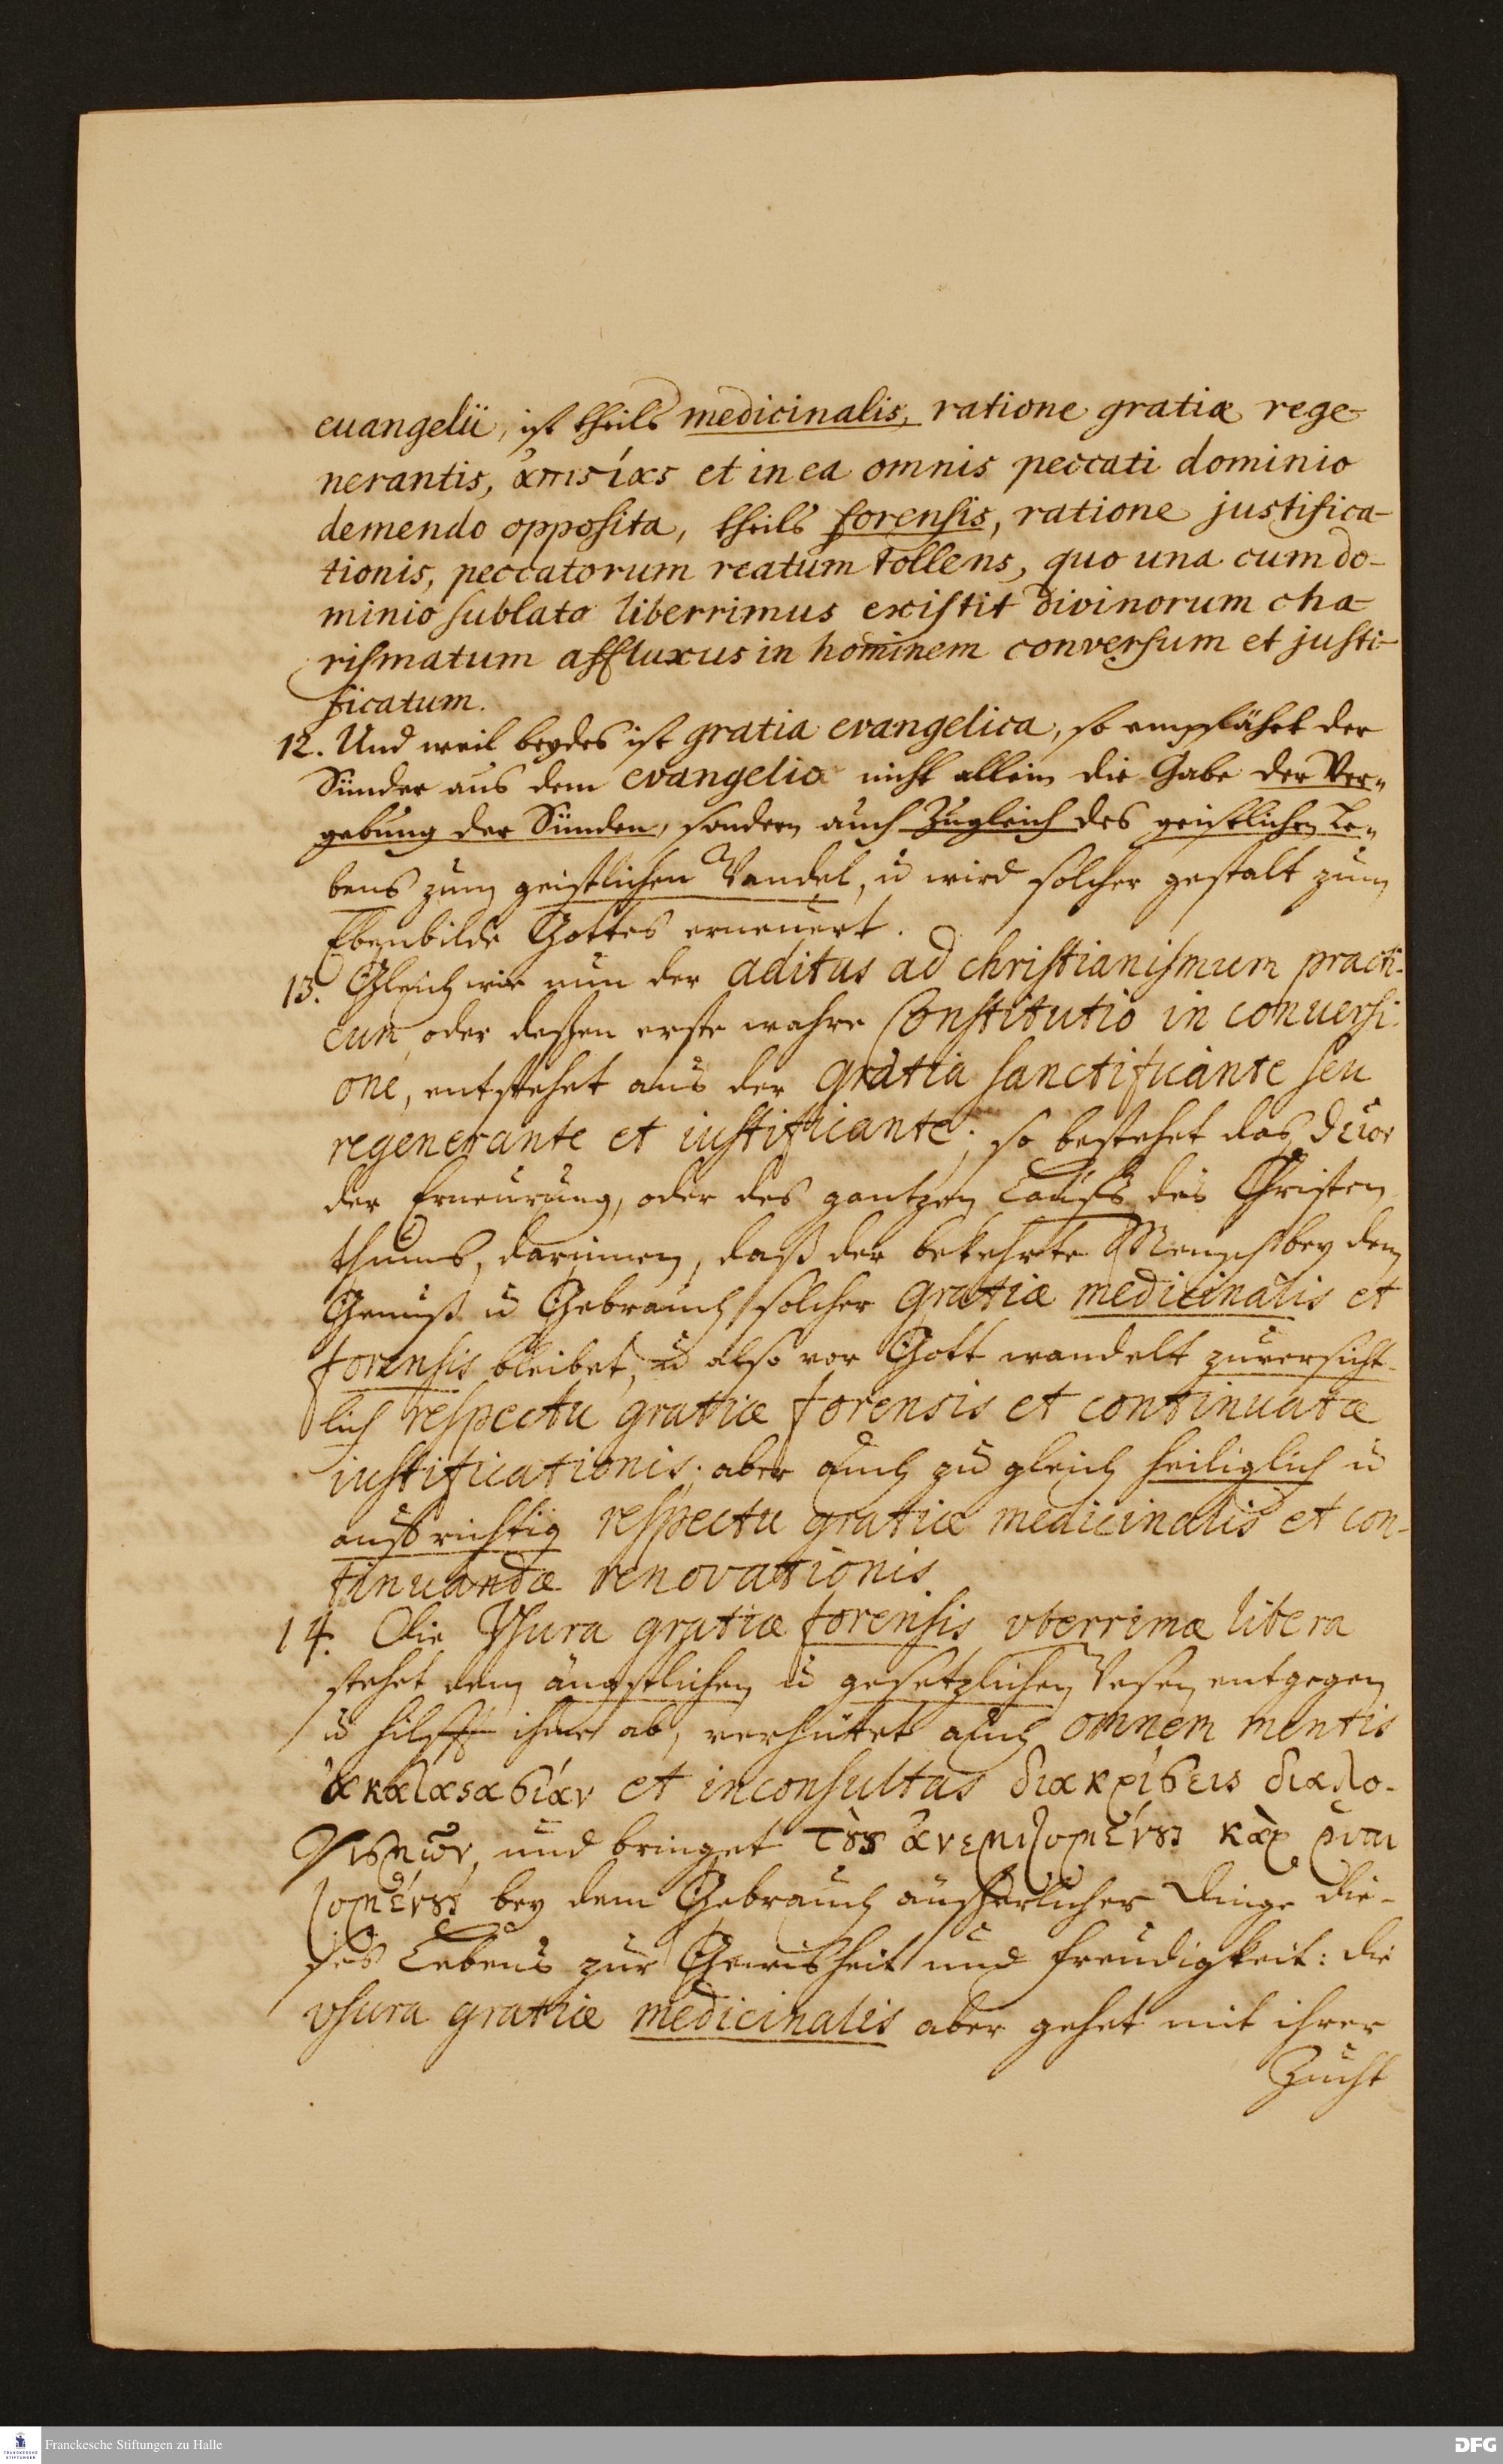 euangelii, ist theils medicinalis, ratione gratiæ rege-
nerantis, ἀπιϛίας et in ea omnis peccati dominio
demendo opposita, theils forensis, ratione justifica-
tionis, peccatorum reatum tollens, quo una cum do-
minio sublato liberrimus existit divinorum cha-
rismatum affluxus in hominem conversum et justi-
ficatum.
12. Und weil beydes ist gratia evangelica, so empfähet der
Sünder aus dem evangelio nicht allein die Gabe der Ver-
gebung der Sünden, sondern auch zugleich des geistlichen Le-
bens zum geistlichen Wandel, u wird solcher gestalt zum
Ebenbilde Gottes erneuert.
13. Gleich wie nun der aditus ad christianismum practi-
cum, oder deßen erste wahre Constitutio in conuersi-
one, entstehet aus der gratia sanctificante seu
regenerante et iustificante; so bestehet das
der Erneurung, oder des gantzen Lauffs des Christen
thums, darinnen, daß der bekehrte Mensch bey dem
Genuß u Gebrauch solcher gratiæ medicinalis et
forensis bleibet, u also vor Gott wandelt zuversicht-
lich respectu gratiæ forensis et continuatæ
iustificationis; aber auch zu gleich heiliglich u
auffrichtig respectu gratiæ medicinalis et con-
tinuandæ renovationis
14. Die Vsura gratiæ forensis vberrima libera
stehet dem ängstlichen u gesetzlichen Wesen entgegen
u hilfft ihme ab, verhütet auch omnem mentis
ἀκαταϛασίαν et inconsultas διακρίσεις διαλο-
γισμῶν, und bringet τὸς ἀνεμιζομένȣς κὰι ῥιπι
ζομένȣς bey dem Gebrauch äußerlicher Dinge die-
ses Lebens zur Gewisheit und freudigkeit: die
vsura gratiæ medicinalis aber gehet mit ihrer
Zucht
Franckesche Stiftungen zu Halle
DFG